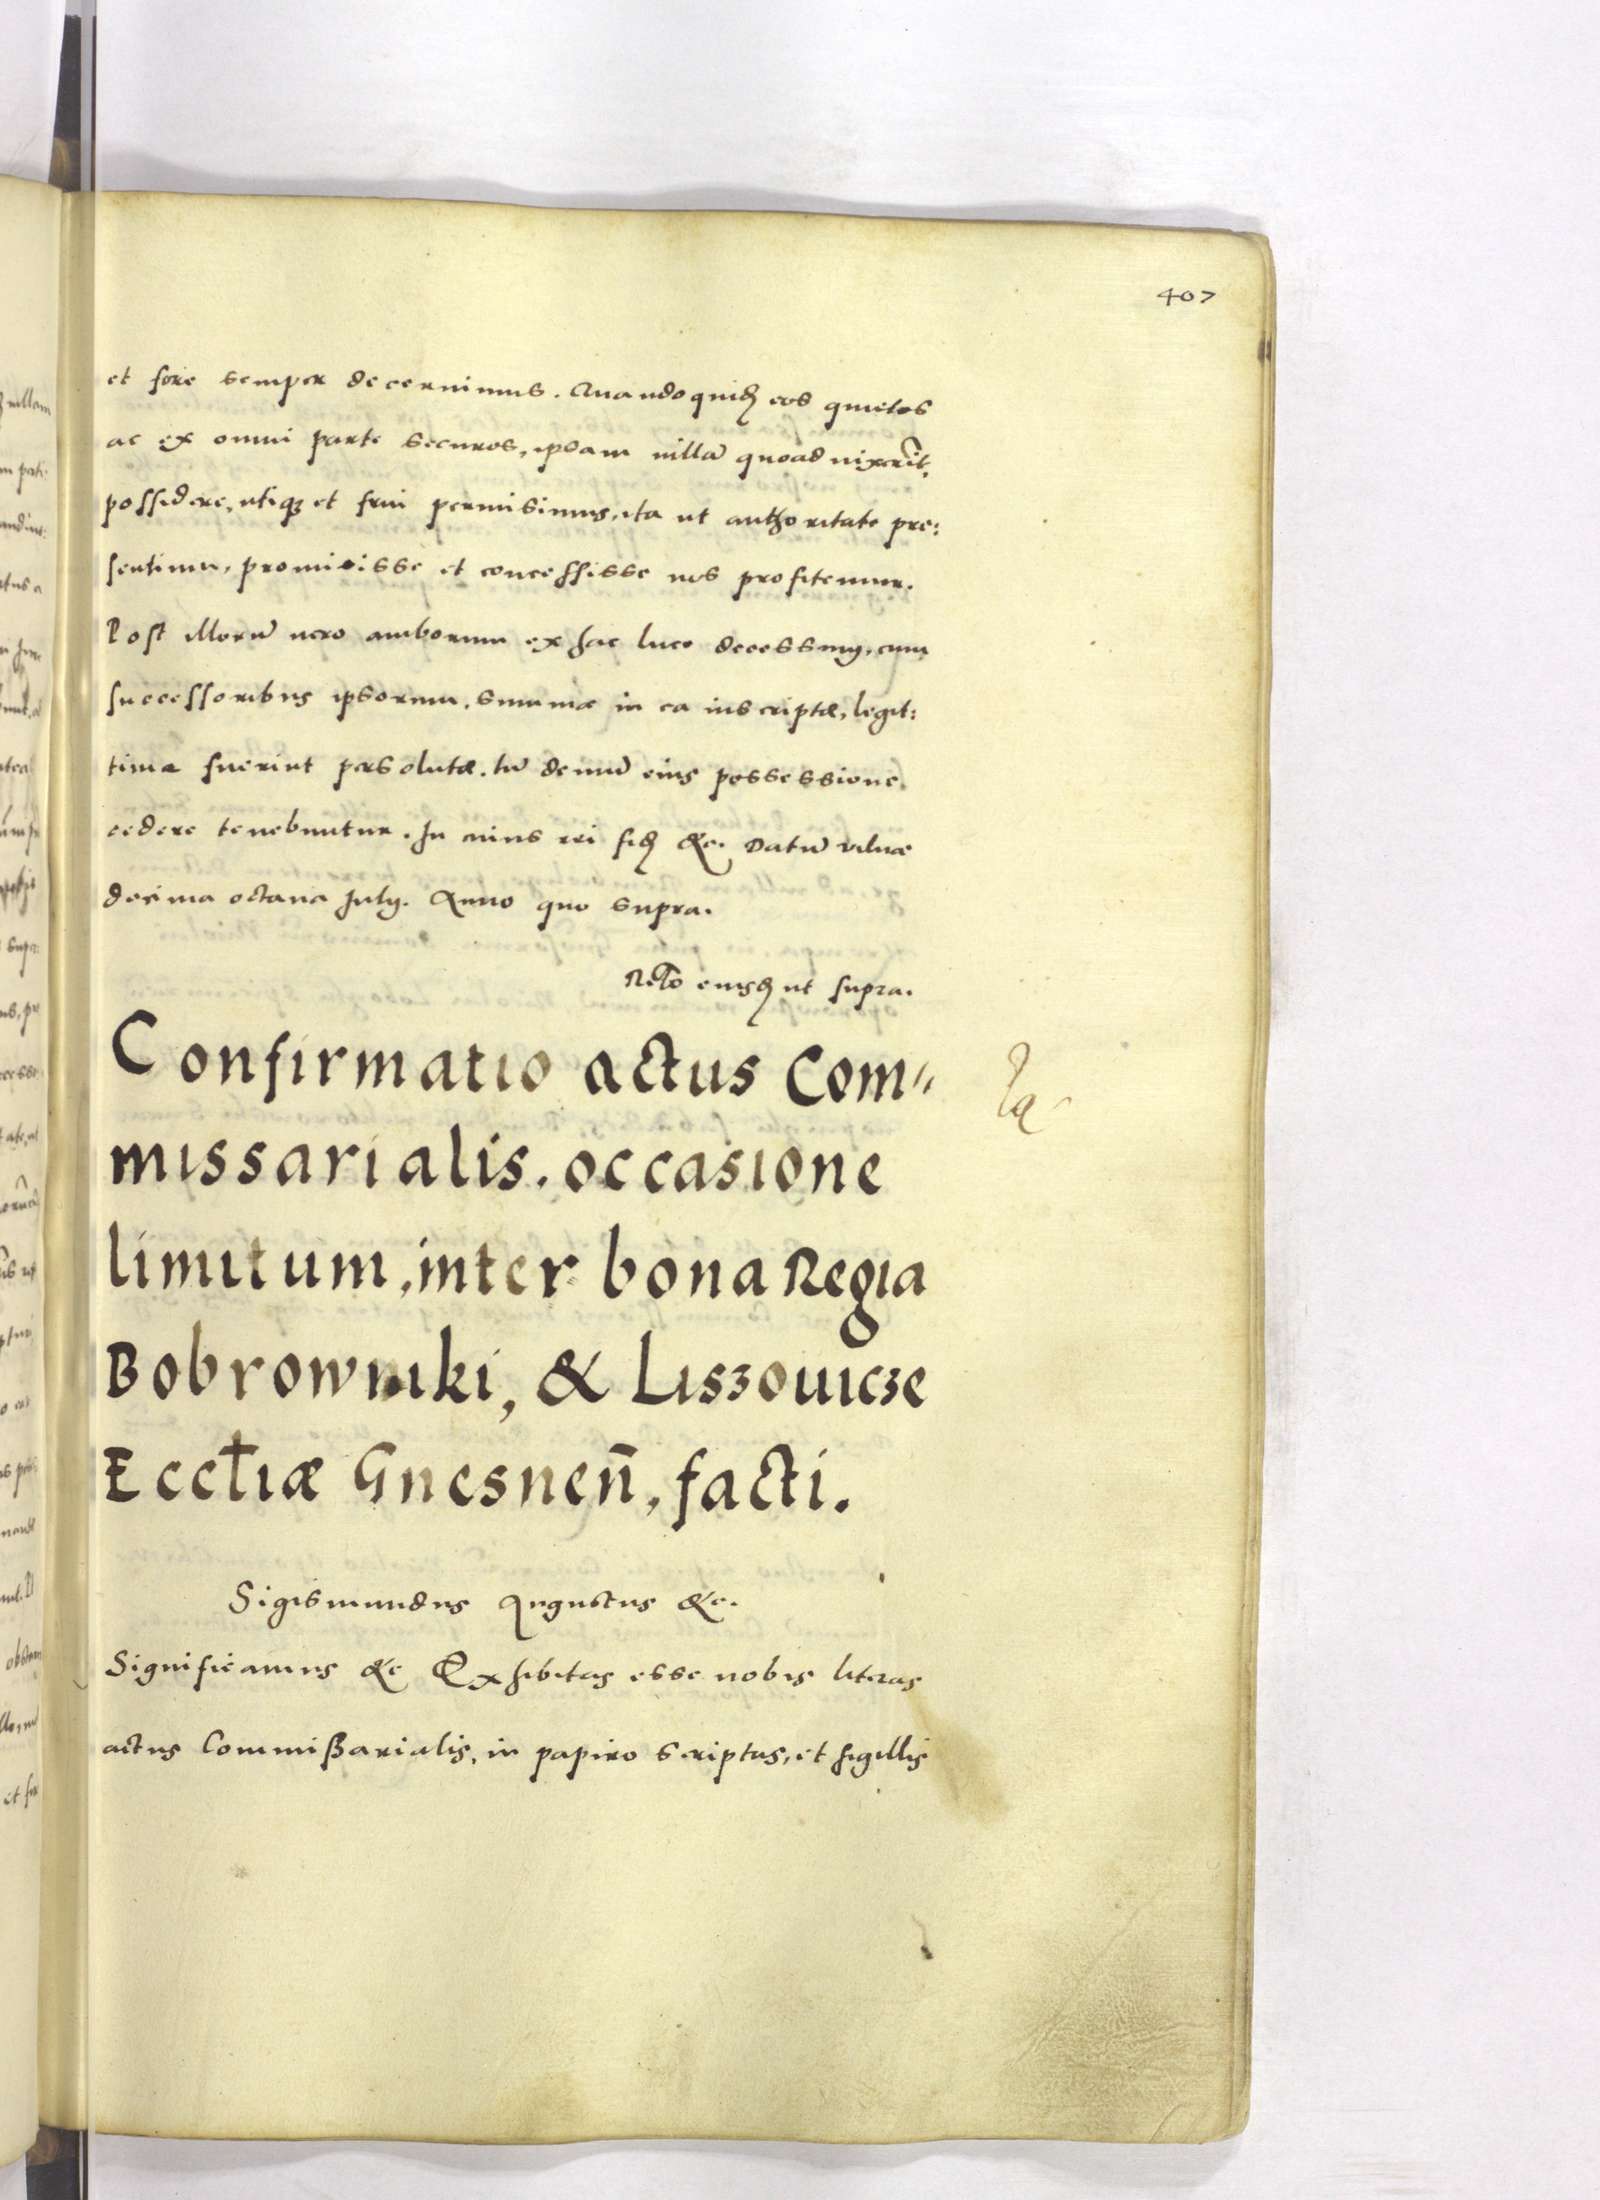 407
et fore semper decernimus. Quandoquidẽ eos quietos
ac ex omni parte securos, ipsam villã quoad vixerĩt,
possidere, utiq₃ et frui permisimus, ita ut authoritate pre:
sentium, promisisse et concessisse nos profitemur.
Post illorũ vero amborum ex hac luce decessum, cum
successoribus ipsorum, summæ in ea inscriptæ, legit:
timæ fuerint persolutæ. tũ demũ eius possessione
cedere tenebuntur. In cuius rei fidẽ &c. Datũ vilnæ
decima octava July. Anno quo supra.
Relõ eiusdẽ ut supra.
Confirmatio actus Com„
missarialis. occasione
limitum, inter bona Regia
Bobrowniki, & Liszouicze
Eccl̃iæ Gnesnen̄, facti.
Sigismundus Augustus &c.
Significamus &c Exhibitas esse nobis literas
actus Commißarialis, in papiro scriptas, et sigillis